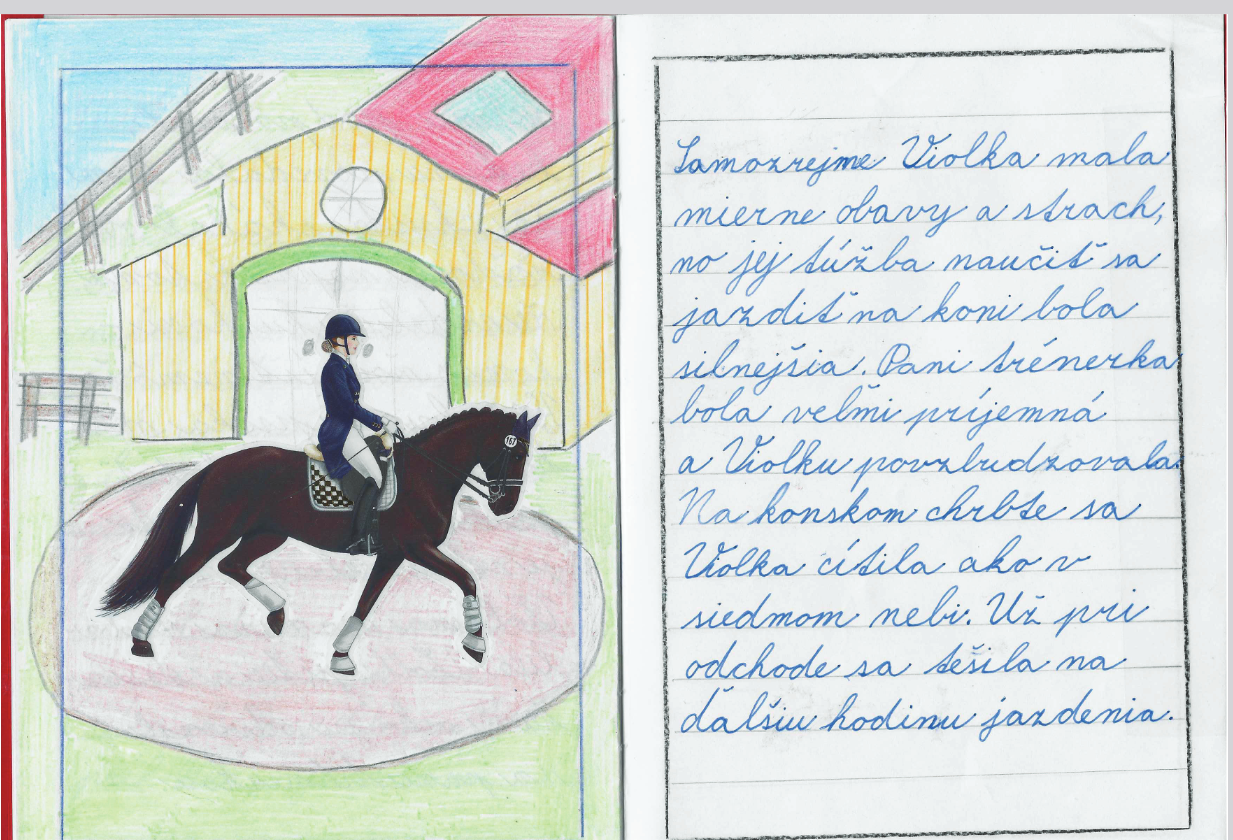 161
Samozrejme Violka mala
mierne obavy a strach,
no jej túžba naučiť sa
jazdiť na koni bola
silnejšia. Pani trénerka
bola veľmi príjemná
a Violku povzbudzovala.
Na konskom chrbte sa
Violka cítila ako v
siedmom nebi. Už pri
odchode sa tešila na
ďalšiu hodinu jazdenia.